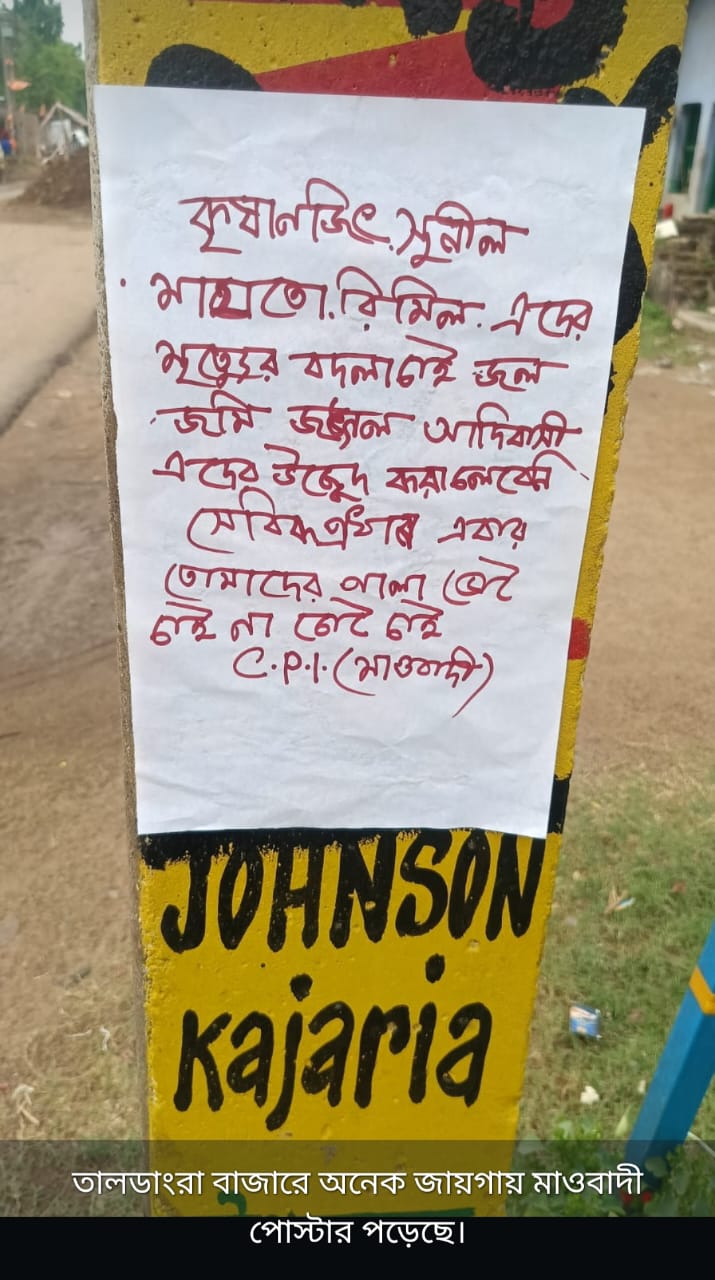 কৃষানজিৎ. সুনীল
মাহাতো. রিমিল. এদের
মৃত্যুর বদলা চাই জল
জমি জঙ্গল আদিবাসী
এদের উচ্ছেদ করা চলবেনি
এবার
তোমাদের পালা ভোট
চাই না চোট চাই
C.P.I. (মাওবাদী)
JOHNSON
Kajaria
তালডাংরা বাজারে অনেক জায়গায় মাওবাদী
পোস্টার পড়েছে।